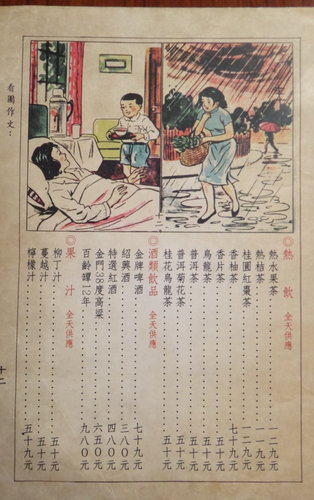 ◎熱飲 全天供應
熱水果茶……一二九元
熱桔茶……一一九元
桂圓紅棗茶……一二九元
香柚茶……七十九元
香片茶……五十元
烏龍茶……五十元
普洱茶……五十元
普洱菊花茶……五十元
桂花烏龍茶……五十元
◎酒類飲品 全天供應
金牌啤酒……七十九元
紹興酒……三八〇元
特選紅酒……四八〇元
金門38度高梁……六五〇元
百齡罈12年……九八〇元
◎果汁 全天供應
柳丁汁……五十元
蔓越汁……五十元
檸檬汁……五十九元
看圖作文：